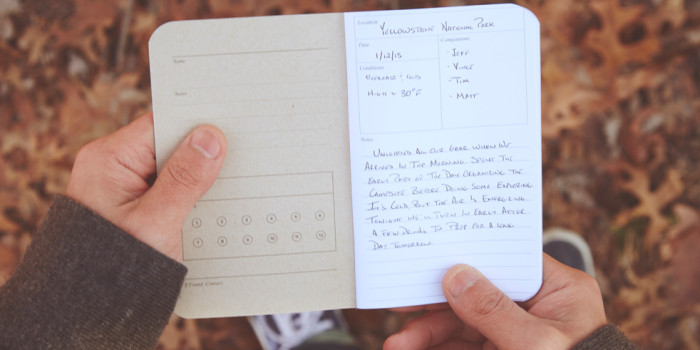 Name
Notes
1 2 3 4 5 6
7 8 9 10 11 12
If Found, Contact:
Location
Yellowstone National Park
Date
1/12/15
Companions
- Jeff
- Vince
- Tim
- Matt
Conditions
Overcast
High ~ 30°F
Notes
Unloaded all our gear when we
arrived in the morning. Spent the
early part of the day organizing the
campsite before doing some exploring.
It's cold but the air is energizing.
Tonight we'll turn in early after
a few drinks to prep for a long
day tomorrow.